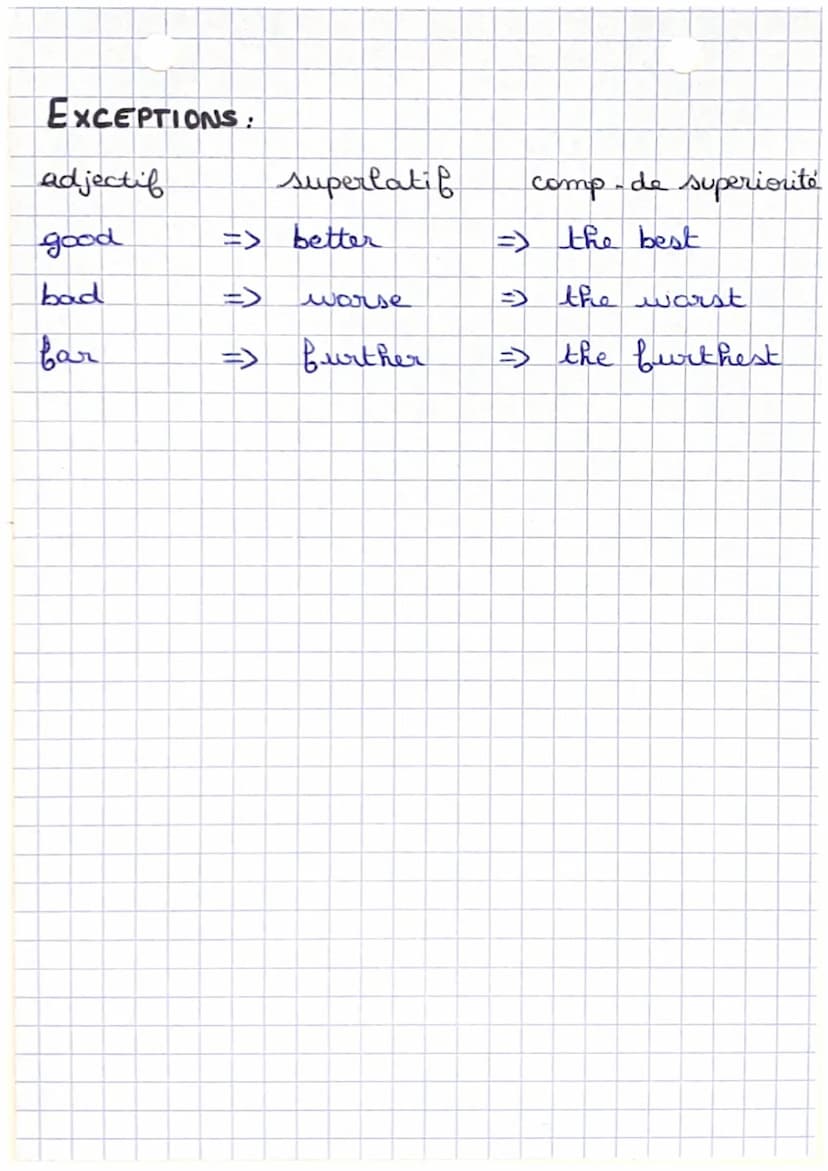 EXCEPTIONS:
adjectif superlatif comp. de superiorité
good => better => the best
bad => worse => the worst
far => further => the furthest